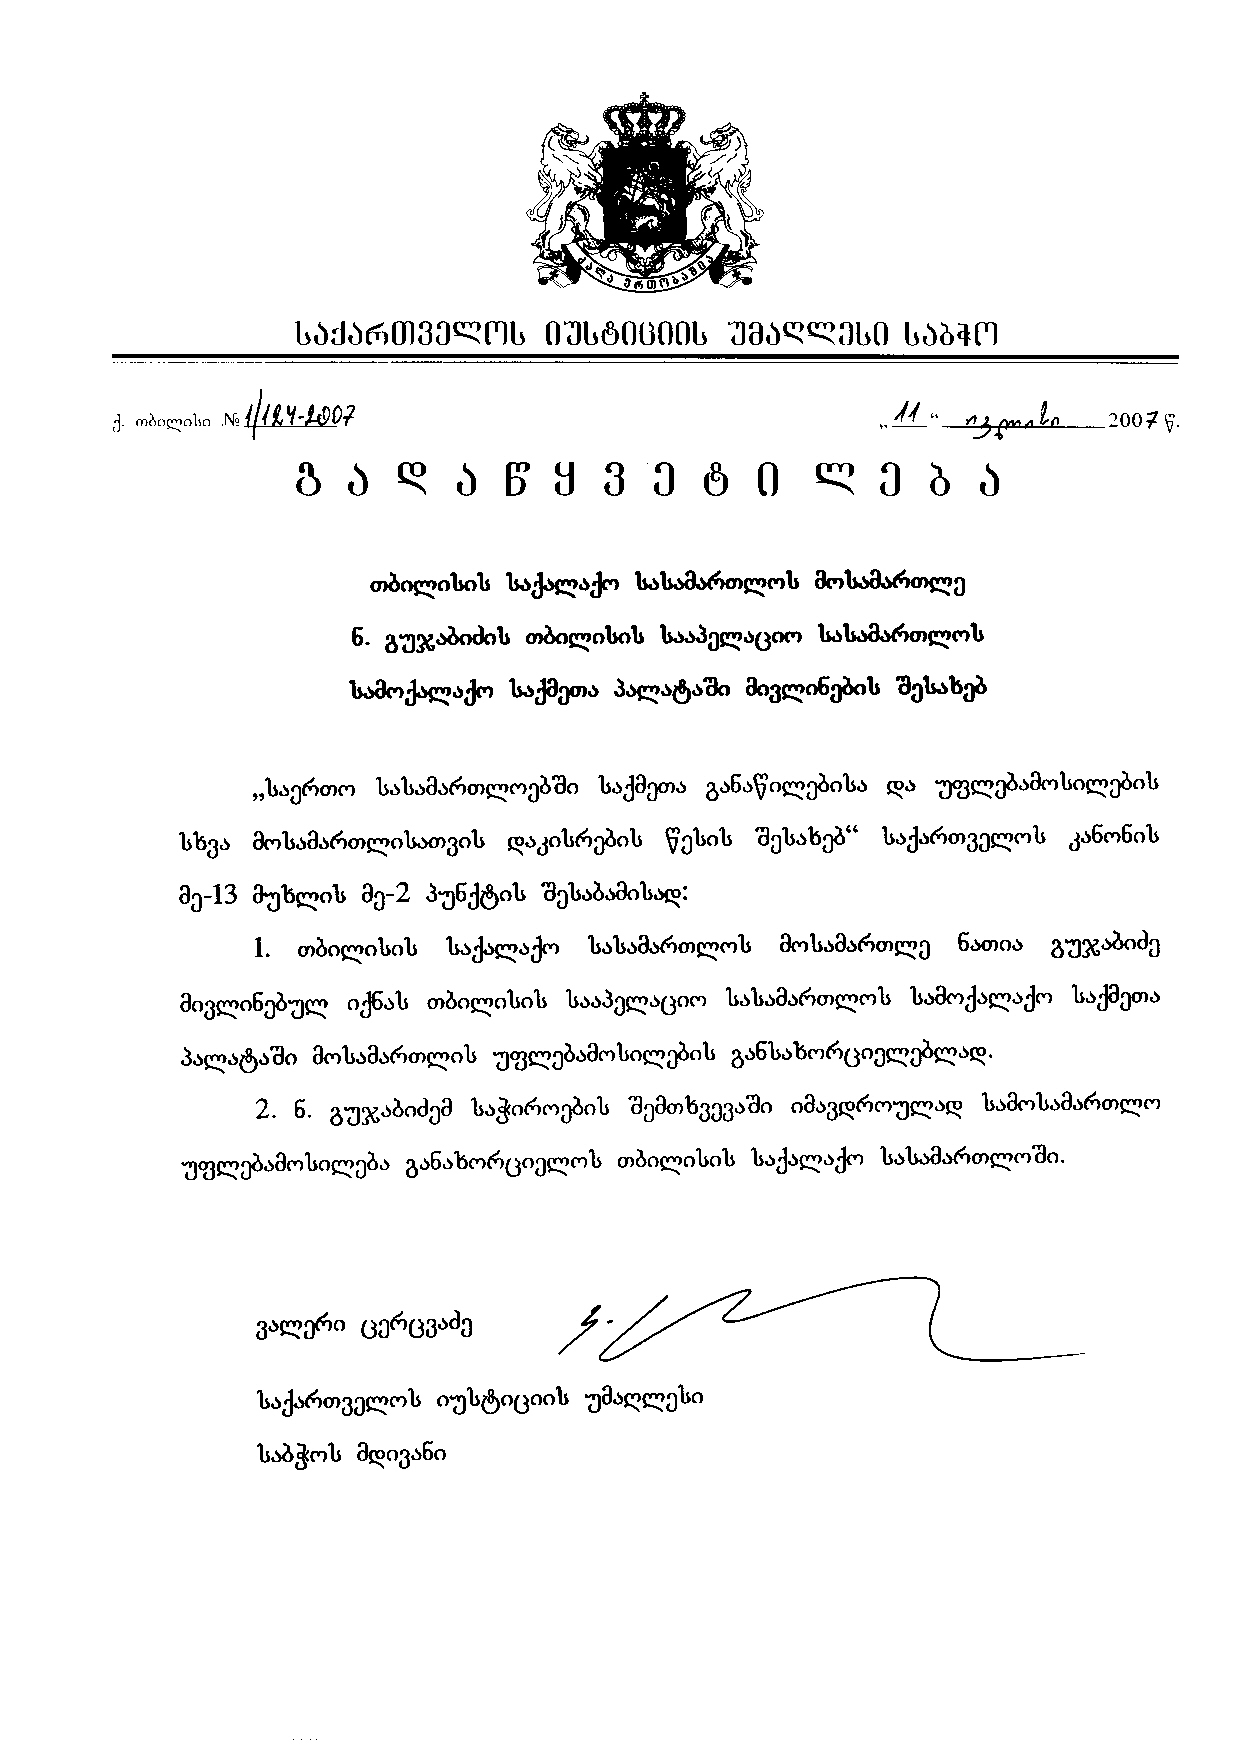 ძალა ერთობაშია
საქართველოს იუსტიციის უმაღლესი საბჭო
ქ. თბილისი № 1/124-2007 „11“ ივლისი 2007 წ.
გ ა დ ა წ ყ ვ ე ტ ი ლ ე ბ ა
თბილისის საქალაქო სასამართლოს მოსამართლე
ნ. გუჯაბიძის თბილისის სააპელაციო სასამართლოს
სამოქალაქო საქმეთა პალატაში მივლინების შესახებ
„საერთო სასამართლოებში საქმეთა განაწილებისა და უფლებამოსილების
სხვა მოსამართლისათვის დაკისრების წესის შესახებ“ საქართველოს კანონის
მე-13 მუხლის მე-2 პუნქტის შესაბამისად:
1. თბილისის საქალაქო სასამართლოს მოსამართლე ნათია გუჯაბიძე
მივლინებულ იქნას თბილისის სააპელაციო სასამართლოს სამოქალაქო საქმეთა
პალატაში მოსამართლის უფლებამოსილების განსახორციელებლად.
2. ნ. გუჯაბიძემ საჭიროების შემთხვევაში იმავდროულად სამოსამართლო
უფლებამოსილება განახორციელოს თბილისის საქალაქო სასამართლოში.
ვალერი ცერცვაძე
საქართველოს იუსტიციის უმაღლესი
საბჭოს მდივანი